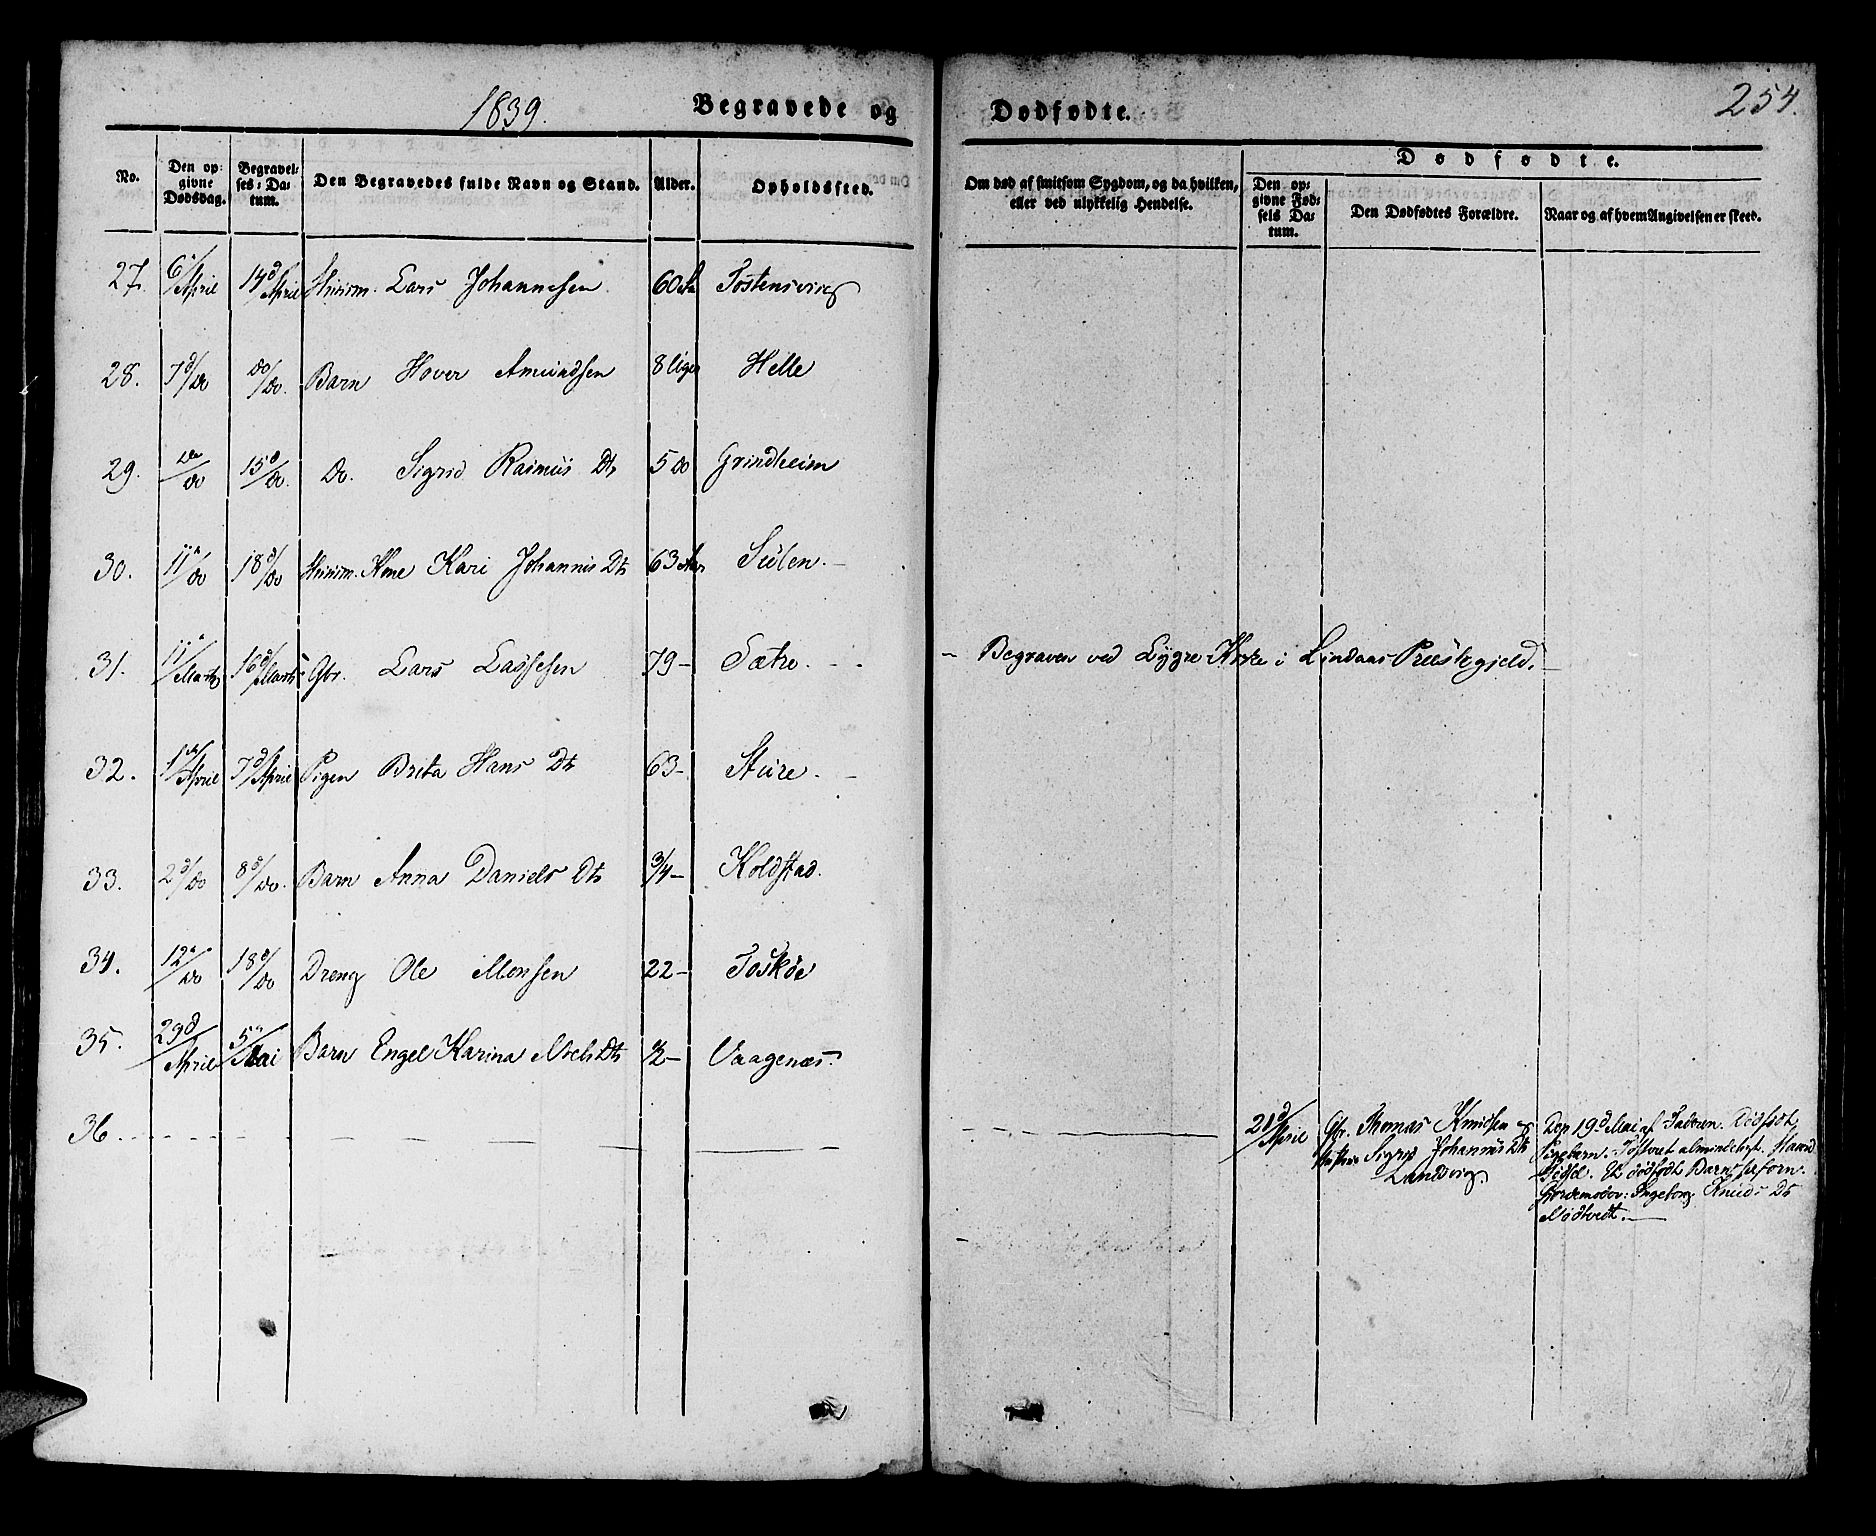 1839.
Begravede og
Dødfødte.
254.
No.
Den op-
givne
Dødsdag.
Begravel-
ses-Da-
tum.
Den Begravedes fulde Navn og Stand.
Alder.
Opholdssted.
Om død af smitsom Sygdom, og da hvilken,
eller ved ulykkelig Hendelse.
Dødfødte.
Den op-
givne Fød-
sels Da-
tum.
Den Dødfødtes Forældre.
Naar og af hvem Angivelsen er skeed.
27. 6/April 14d/April Lars Johannesen 60 Tostensvig
28. 7d/Do Do/Do. Barn Hover Amundsen 8 Uger Helle
29. Do/Do 15d/Do. Do. Sigrid Rasmus Dtr 5 Do Grindheim
30. 11/Do 18d/Do Kone Kari Johannis Dtr 63 Aar Sulen.
31. 11/Marts 16d/Marts Gbr. Lars Lassesen 79 - Sætre. - Begraven ved Lygre Kirke i Lindaas Præstegjeld.
32. 1/April 7d/April Pigen Brita Hans Dtr 63 - Sture.
33. 2d/Do 8d/Do. Barn Anna Daniels Dtr 3/4 - Koldstad.
34. 12/Do 18d/Do Dreng Ole Monsen 22 - Toskøe
35. 29d/April 5/Mai Barn Engel Karina Niels Dtr 1/2 - Vaagenæs.
36. 21d/April Gbr. Thomas Knudsen og
Hustrue Sigrid Johannis Dtr
Landsvig.
Den 19d Mai af Faderen. Dødfødt
Pigebarn. Fosteret almindeligt.
Et dødfødt Barn tilforn.
Jordemoder: Ingeborg Knuds Dtr
Nødtvedt.